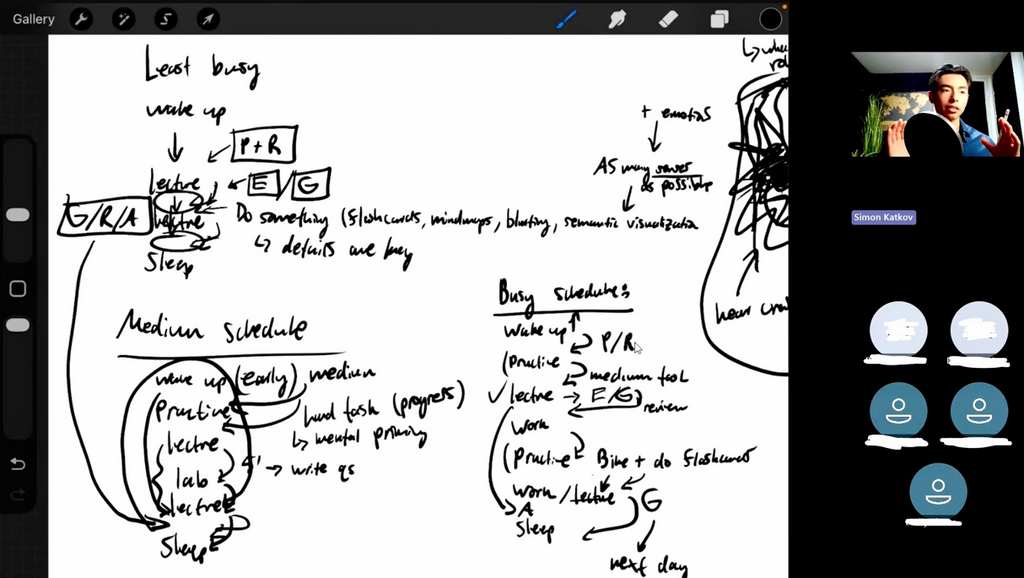 Gallery
Least busy
wake up
P + R
lecture
E / G
G/R/A
lecture
Do something (flashcards, mindmaps, blurting, semantic visualization
↳ details are key
Sleep
+ emotions
As many senses
as possible
Medium schedule
wake up (early) medium
Practice
hard task (progress)
↳ mental priming
lecture
5' → write qs
lab
lecture
Sleep
Busy schedule:
wake up
P/R
(Practice
medium task
✓ lecture → E/(G)
review
work
(Practice Bike + do flashcards
work / lecture
G
A
Sleep
next day
hear
Simon Katkov